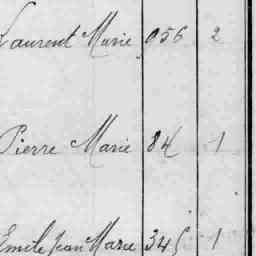 Laurent Marie 956 2
Pierre Marie 84 1
Emile Jean Marie 345 1